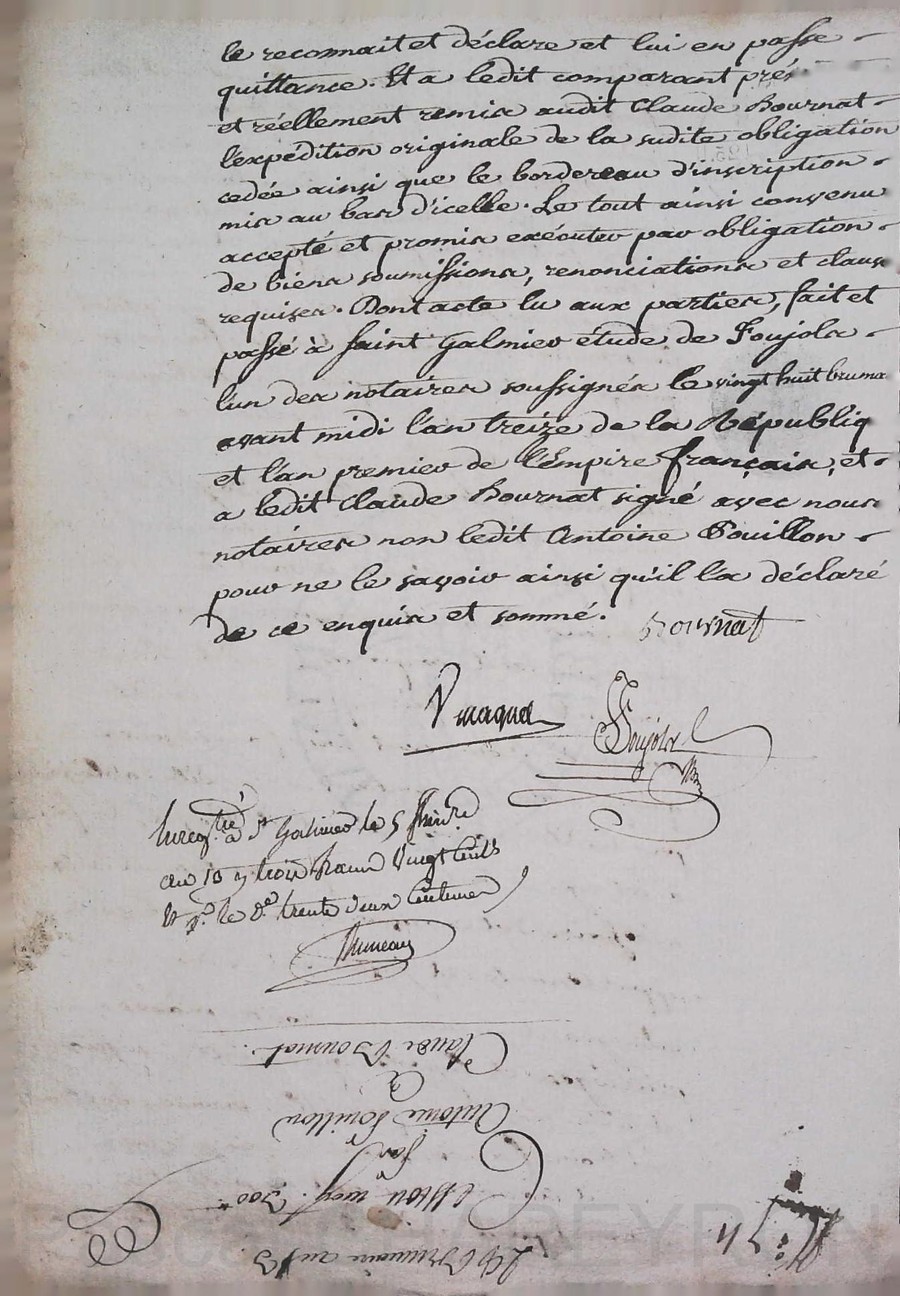 le reconnait et déclare et lui en passe
quittance. Et a ledit comparant prés
et réellement remis audit Claude Bournat
l'expédition originale de la sudite obligation
cedée ainsi que le bordereau d'inscription
mis au bas d'icelle. Le tout ainsi convenu
accepté et promis exécuter par obligation
de biens soumissions, renonciations et claus
requises. Dont acte lu aux parties, fait et
passé à saint Galmier étude de Foujols
l'un des notaires soussignés le vingt huit bruma
avant midi l'an treize de la Républiq
et l'an premier de l'Empire français, et
a ledit Claude Bournat signé avec nous
notaires non ledit Antoine Pouillon
pour ne le savoir ainsi qu'il l'a déclaré
de ce enquis et sommé.
Bournat
Foujols
à St Galmier le 5 frimre
an 13 trois francs vingt cents
le de trente deux centimes
Bruneau
Claude Bournat
a
Antoine Pouillon
par
Cession 300
28 Brumaire an 13